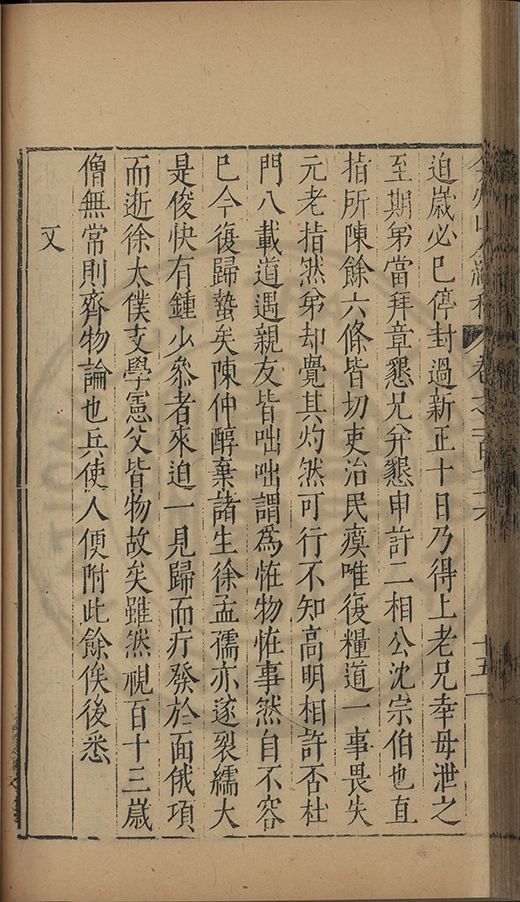 弇州山人續稿 卷之一百七十六 十五
迫歲必已停封過新正十日乃得上老兄幸毋泄之
至期弟當拜章懇兄并懇申許二相公沈宗伯也直
指所陳餘六條皆切吏治民瘼唯復糧道一事畏失
元老指然弟却覺其灼然可行不知高明相許否杜
門八載道遇親友皆咄咄謂爲恠物恠事然自不容
已今復歸蟄矣陳仲醇棄諸生徐孟孺亦遂裂繻大
是俊快有鍾少叅者來迫一見歸而疔發於面俄項
而逝徐太僕支學憲父皆物故矣雖然視百十三歲
僧無常則齊物論也兵使人便附此餘俟後悉
又